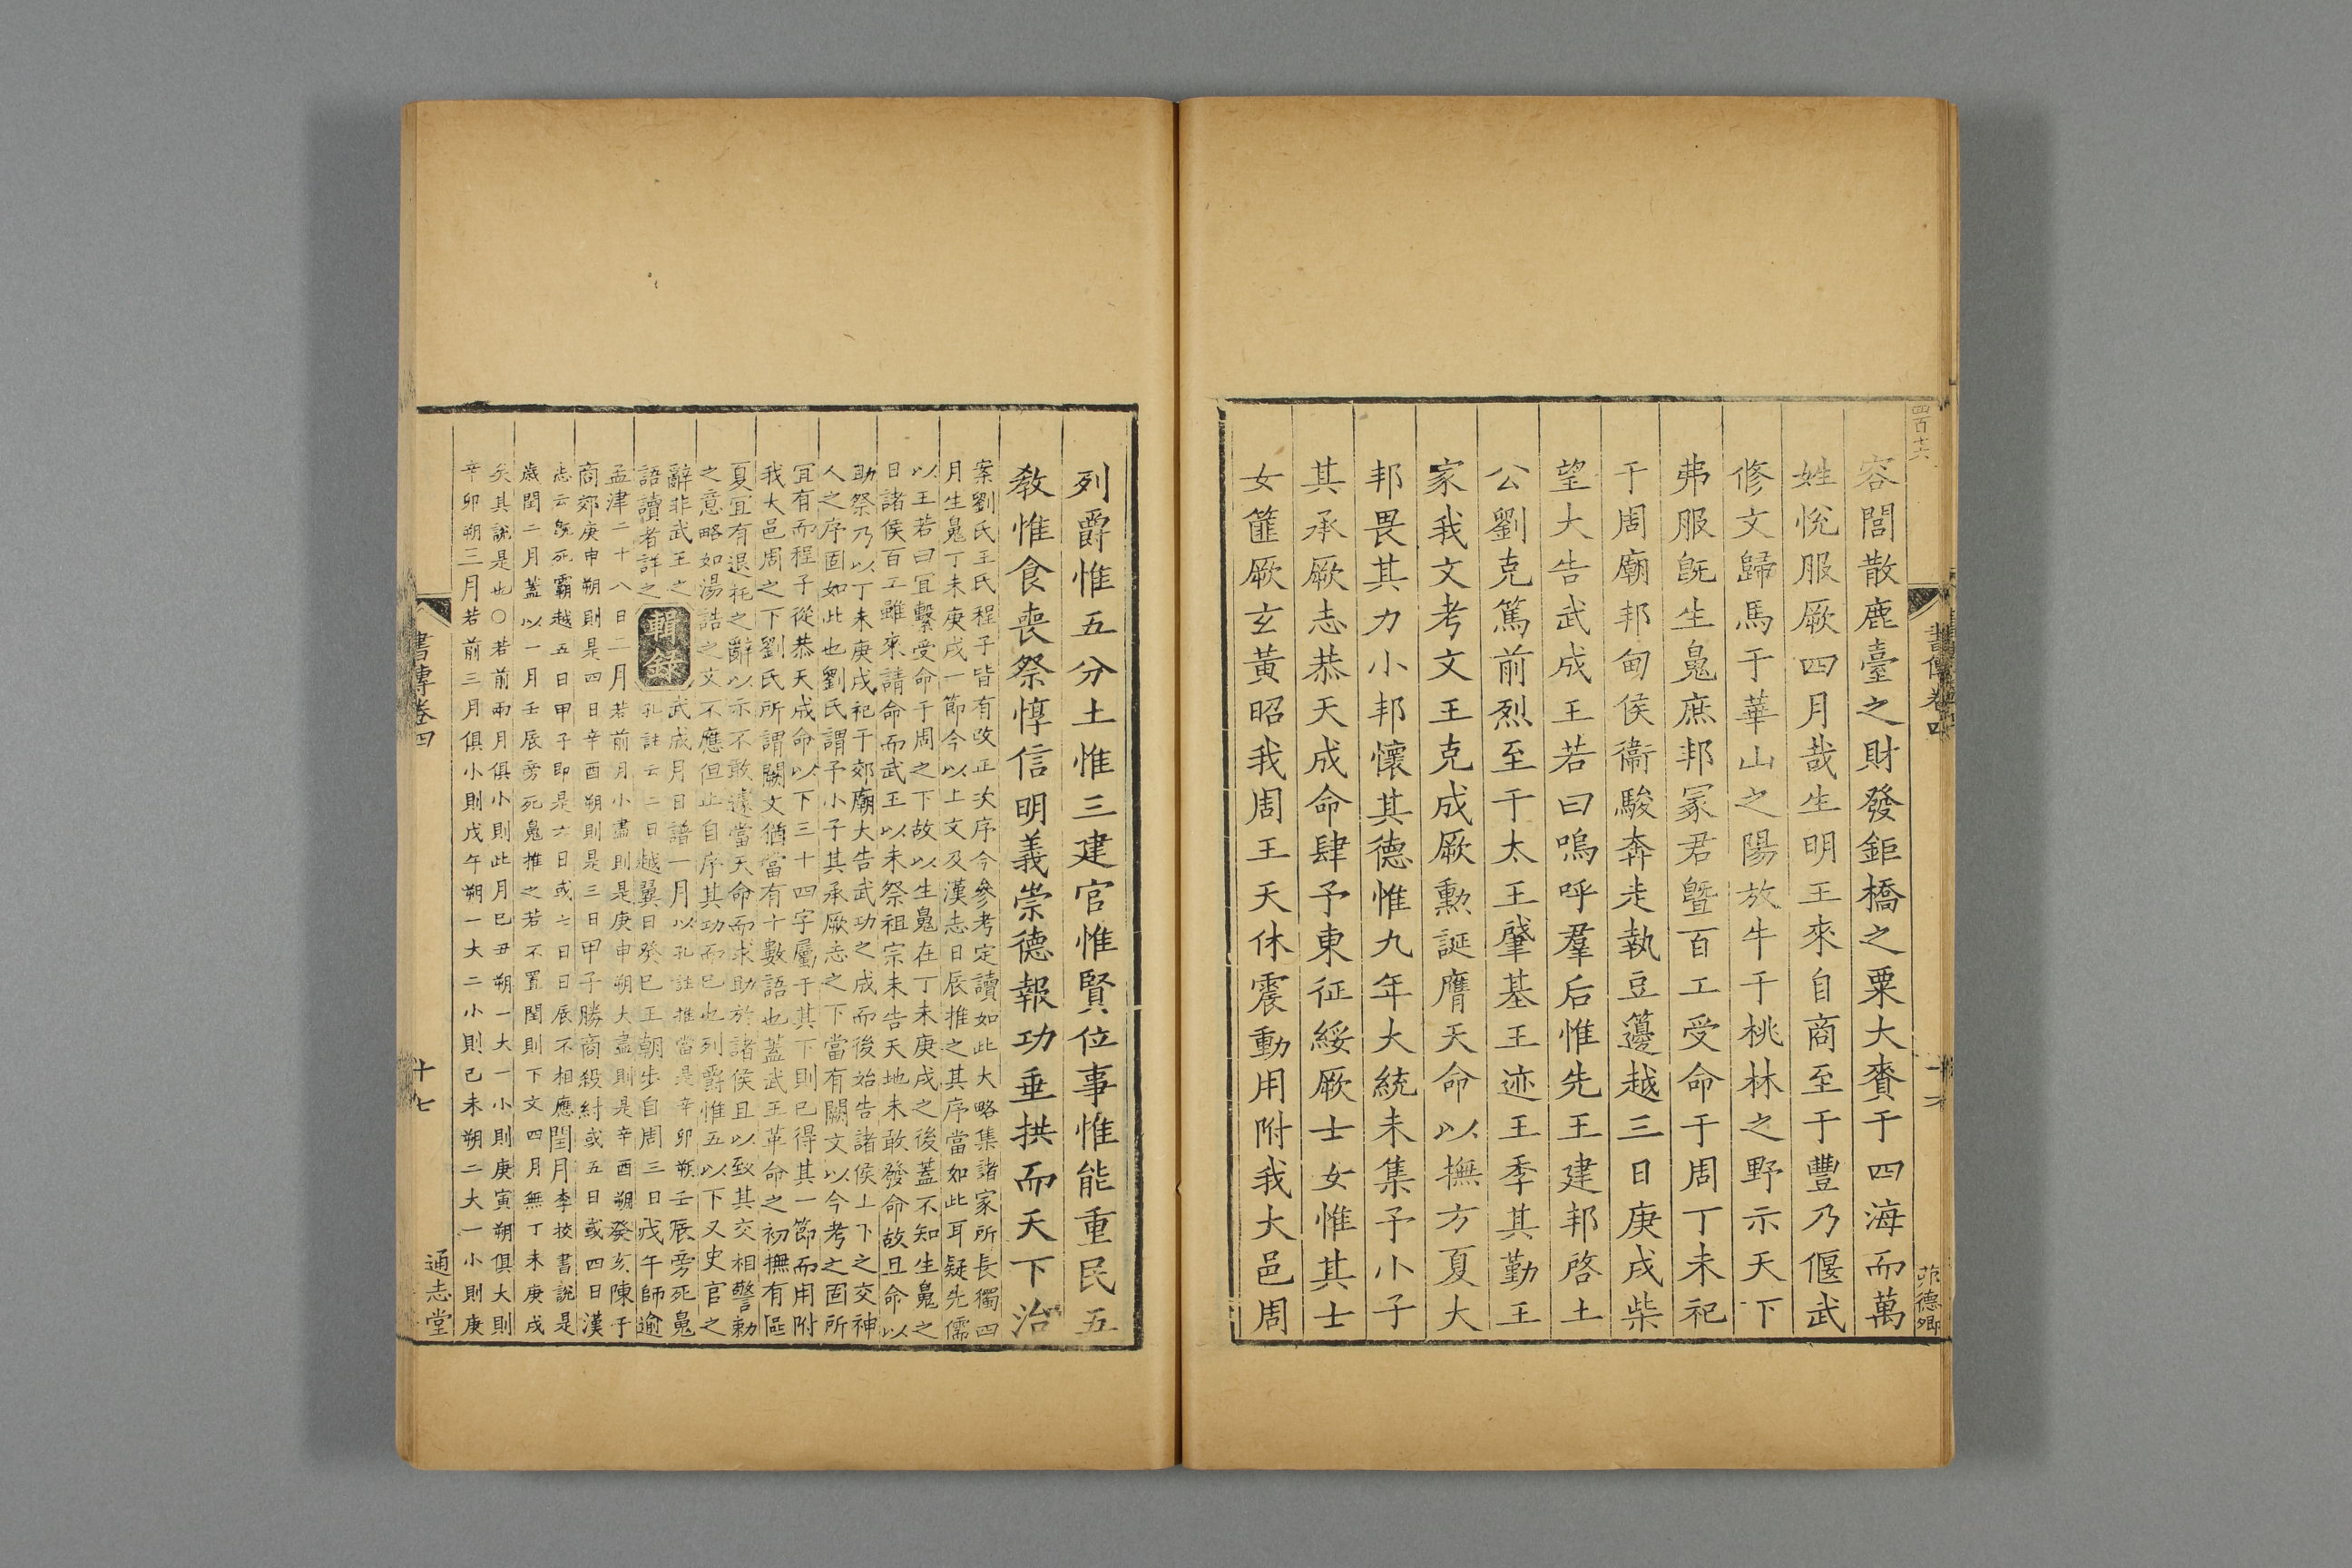 四百十六
書傳卷四
容閭散鹿臺之財發鉅橋之粟大賚于四海而萬
姓悅服厥四月哉生明王來自商至于豐乃偃武
修文歸馬于華山之陽放牛于桃林之野示天下
弗服旣生魄庶邦冢君曁百工受命于周丁未祀
于周廟邦甸侯衞駿奔走執豆籩越三日庚戌柴
望大告武成王若曰嗚呼羣后惟先王建邦啓土
公劉克篤前烈至于太王肇基王迹王季其勤王
家我文考文王克成厥勲誕膺天命以撫方夏大
邦畏其力小邦懷其德惟九年大統未集予小子
其承厥志恭天成命肆予東征綏厥士女惟其士
女篚厥玄黃昭我周王天休震動用附我大邑周
列爵惟五分土惟三建官惟賢位事惟能重民五
敎惟食喪祭惇信明義崇德報功垂拱而天下治
案劉氏王氏程子皆有改正次序今參考定讀如此大略集諸家所長獨四
月生魄丁未庚戌一節今以上文及漢志日辰推之其序當如此耳疑先儒
以王若曰宜繫受命于周之下故以生魄在丁未庚戌之後蓋不知生魄之
日諸侯百工雖來請命而武王以未祭祖宗未告天地未敢發命故且命以
助祭乃以丁未庚戌祀于郊廟大告武功之成而後始告諸侯上下之交神
人之序固如此也劉氏謂予小子其承厥志之下當有闕文以今考之固所
宜有而程子從恭天成命以下三十四字屬于其下則已得其一節而用附
我大邑周之下劉氏所謂闕文猶當有十數語也蓋武王革命之初撫有區
夏宜有退托之辭以示不敢遽當天命而求助於諸侯且以致其交相警勅
之意略如湯誥之文不應但止自序其功而已也列爵惟五以下又史官之
辭非武王之
語讀者詳之
輯錄
武成月日譜一月以孔註推當是辛卯朔壬辰旁死魄
孔註云二日越翼日癸巳王朝步自周三日戊午師逾
孟津二十八日二月若前月小盡則是庚申朔大盡則是辛酉朔癸亥陳于
商郊庚申朔則是四日辛酉朔則是三日甲子勝商殺紂或五日或四日漢
志云旣死霸越五日甲子卽是六日或七日日辰不相應閏月李校書說是
歲閏二月蓋以一月壬辰旁死魄推之若不置閏則下文四月無丁未庚戌
矣其說是也〇若前兩月俱小則此月巳丑朔一大一小則庚寅朔俱大則
辛卯朔三月若前三月俱小則戊午朔一大二小則己未朔二大一小則庚
書傳卷四
十七
通志堂